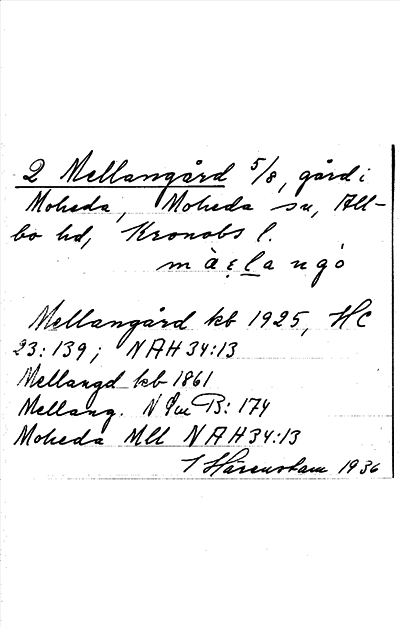 2 Mellangård 5/8, gård i
Moheda, Moheda sn, All-
bo hd, Kronobs l.
Mellangård kb 1925, HC
23:139; NAH34:13
Mellangd kb 1861
Mellang. N B: 174
Moheda Mll NAH34:13
Härenstam 1936